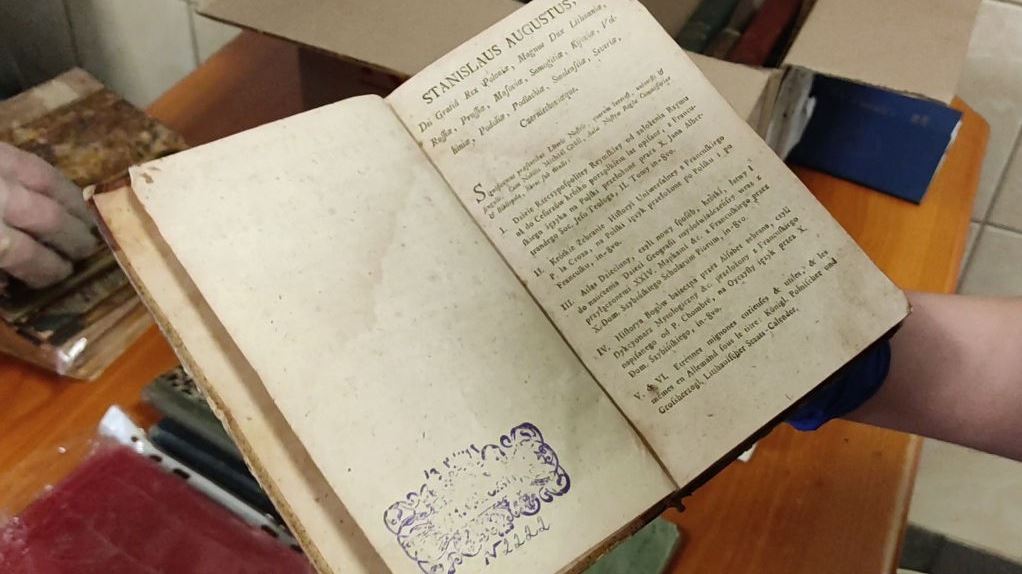 STANISLAUS AUGUSTUS,
Dei Gratiâ Rex Poloniæ, Magnus Dux Lithuaniæ,
Russiæ, Prussiæ, Masoviæ, Samogitiæ, Kijoviæ, Vol-
hiniæ, Podoliæ, Podlachiæ, Smolensciæ, Severiæ,
Czerniechoviæque.
I. Dzieie Rzeczypospolitey Rzymskiey od założenia Rzymu
aż do Cesarzów krótko porządkiem lat opisane, z Francu-
skiego ięzyka na Polski przełożone przez X. Jana Alber-
trandego Soc. Jesu Teologa, II. Tomy in-8vo.
II. Krótkie Zebranie Historyi Uniwersalney z Francuskiego
P. la Croza, na Polski ięzyk przełożone po Polsku i po
Francusku, in-8vo.
III. Atlas Dziecinny, czyli nowy sposób, krótki, łatwy i
do nauczenia Dzieci Geografii naydoświadczeńszy wraz z
przyłączonemi XXIV. Mappami &c. z Francuskiego przez
X. Dom. Szybińskiego Scholarum Piarum, in-8vo.
IV. Historya Bogów baieczna przez Alfabet zebrana, czyli
Dykcyonarz Mytologiczny &c. przełożony z Francuskiego
napisanego od P. Chompré, na Oyczysty ięzyk przez X.
Dom. Szybińskiego, in-8vo.
V. & VI. Etrennes mignones curieuses & utiles, & les
mêmes en Allemand sous le titre: Königl. Polnischer und
Großherzogl. Litthauischer Staats-Calender.
N 2222